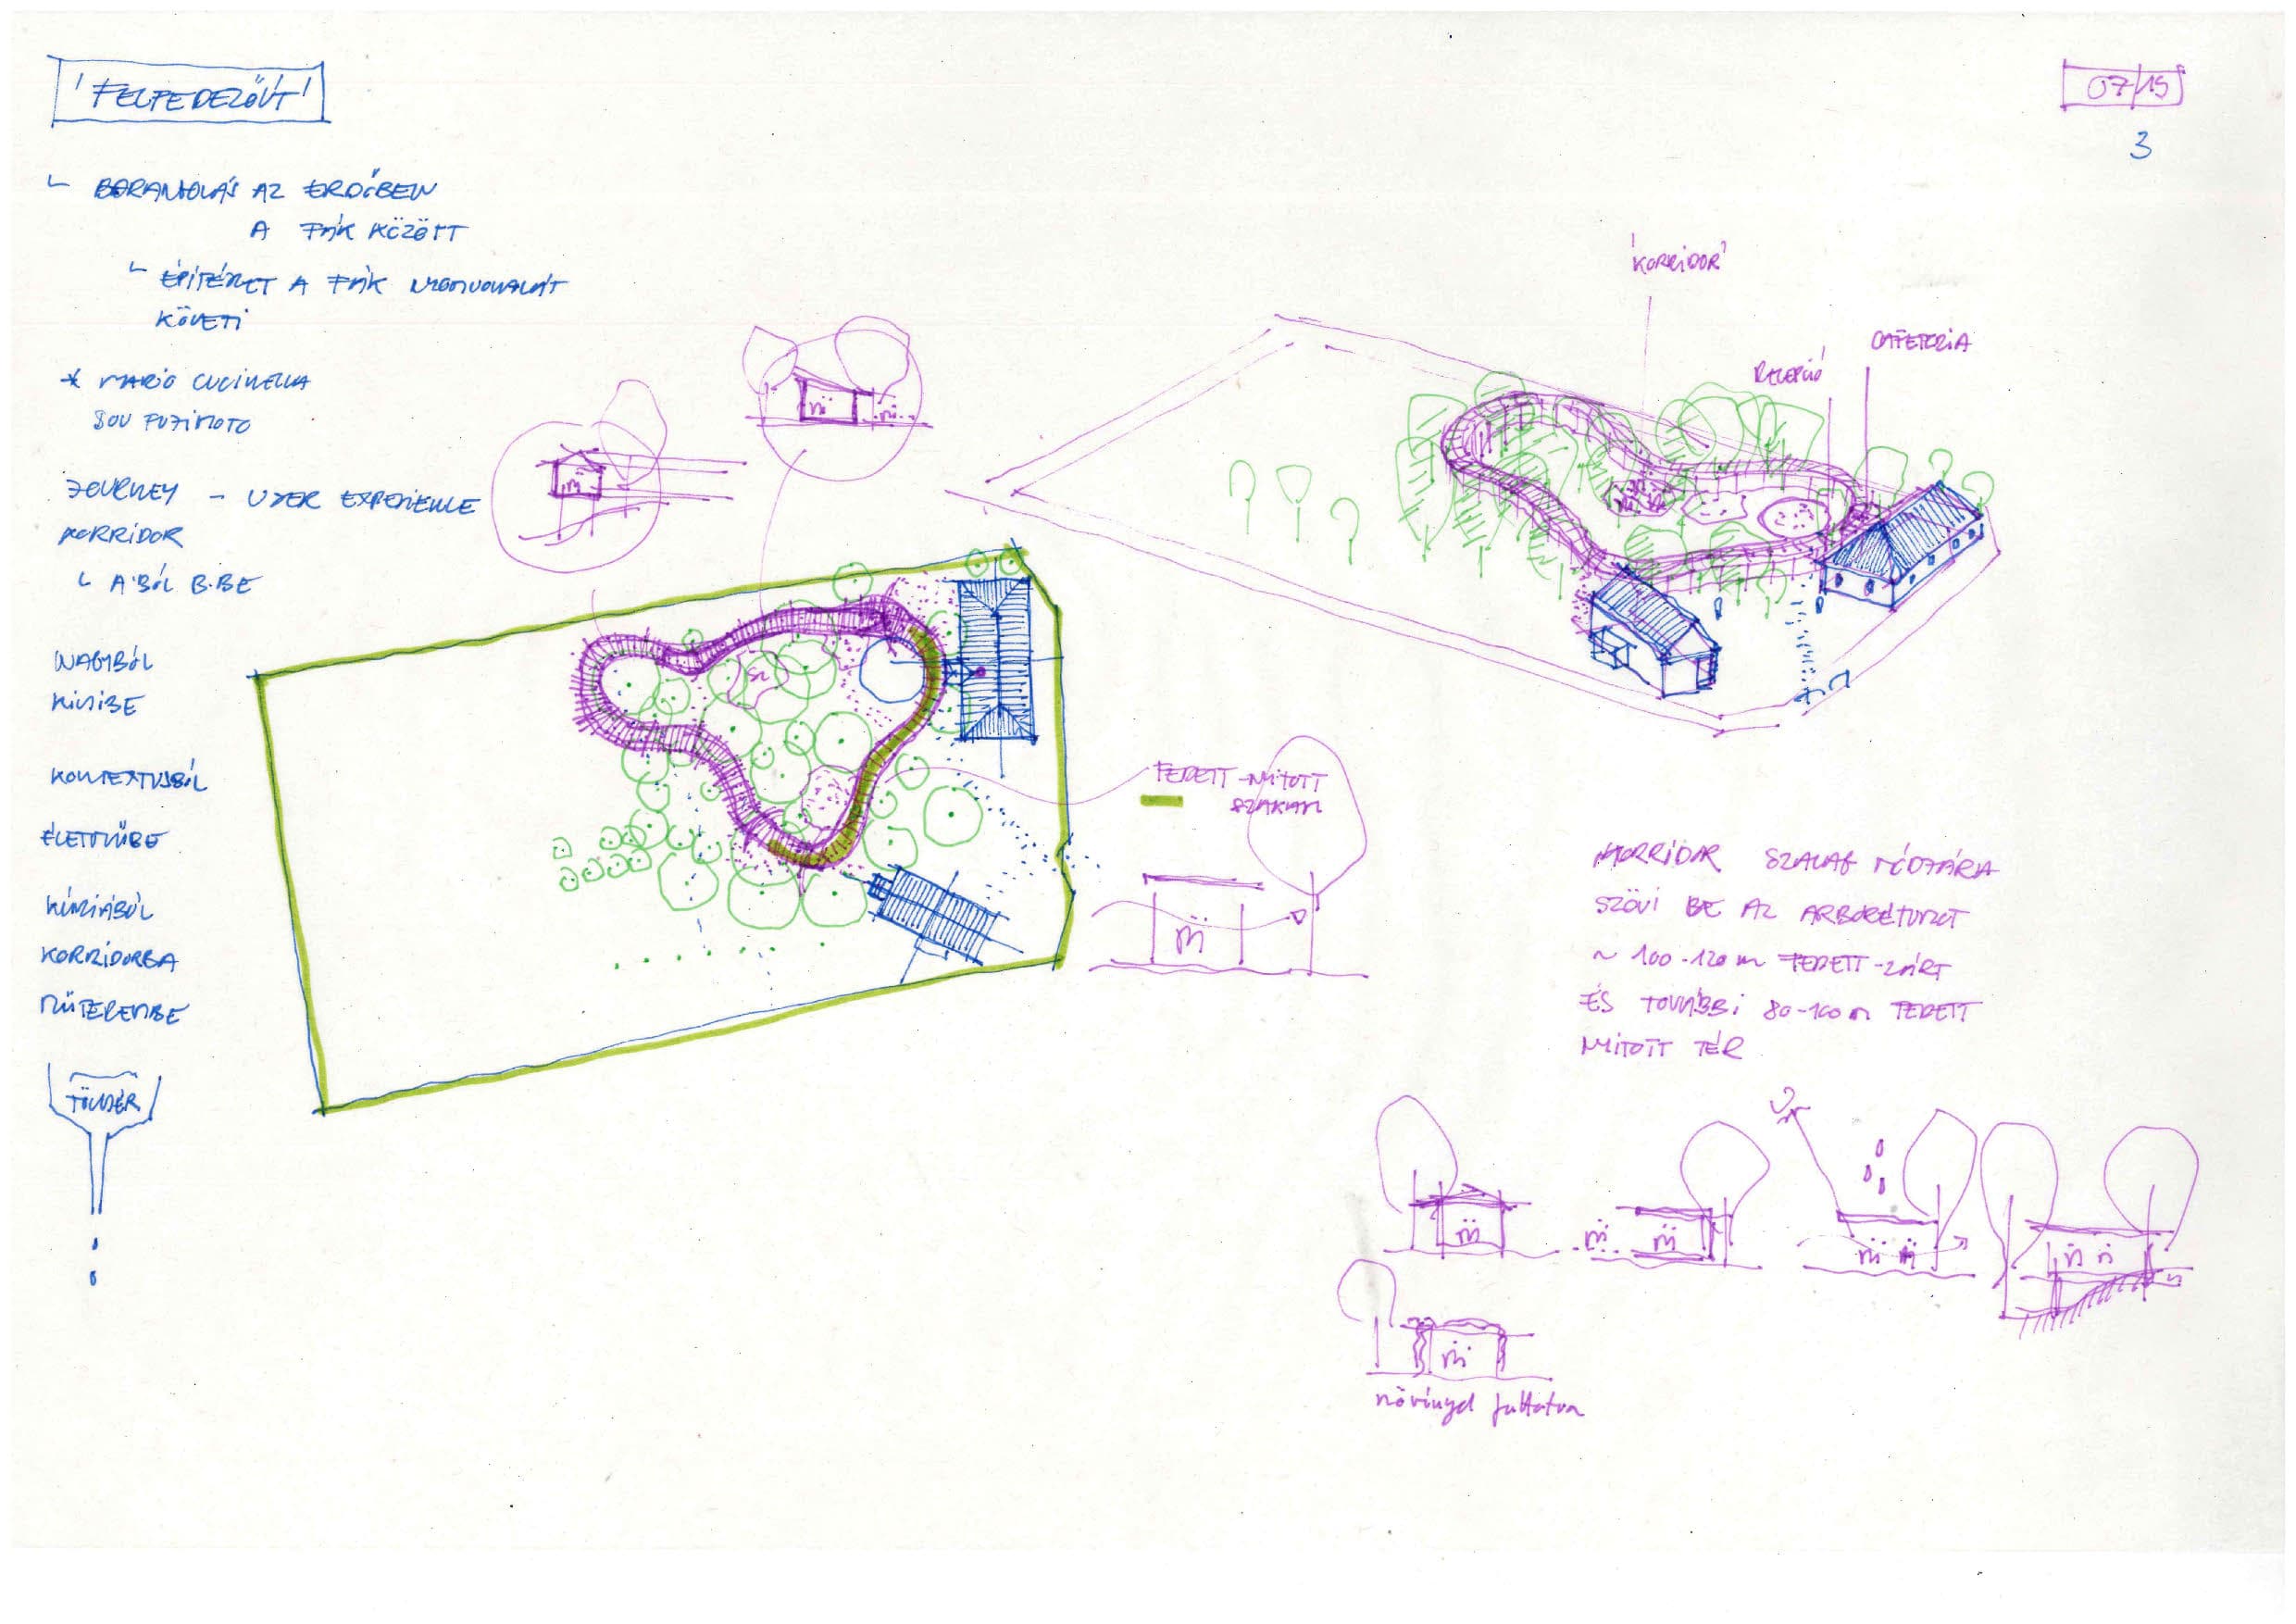 'FELFEDEZŐÚT'
07/15
3
└ BARANGOLÁS AZ ERDŐBEN
A FÁK KÖZÖTT
└ ÉPÍTÉSZET A FÁK NYOMVONALÁT
KÖVETI
* MARIO CUCINELLA
SOU FUJIMOTO
JOURNEY - USER EXPERIENCE
KORRIDOR
└ A'BÓL B-BE
NAGYBÓL
KICSIBE
KONTEXTUSBÓL
ÉLETTÉRBE
KORRIDORBA
MŰTEREMBE
TÖLCSÉR
'KORRIDOR'
RECEPCIÓ
CAFETERIA
FEDETT-NYITOTT
SZAKASZ
KORRIDOR SZALAG MÓDJÁRA
SZÖVI BE AZ ARBORÉTUMOT
~ 100-120 m FEDETT-ZÁRT
ÉS TOVÁBBI 80-100 m FEDETT
NYITOTT TÉR
növénnyel futtatva